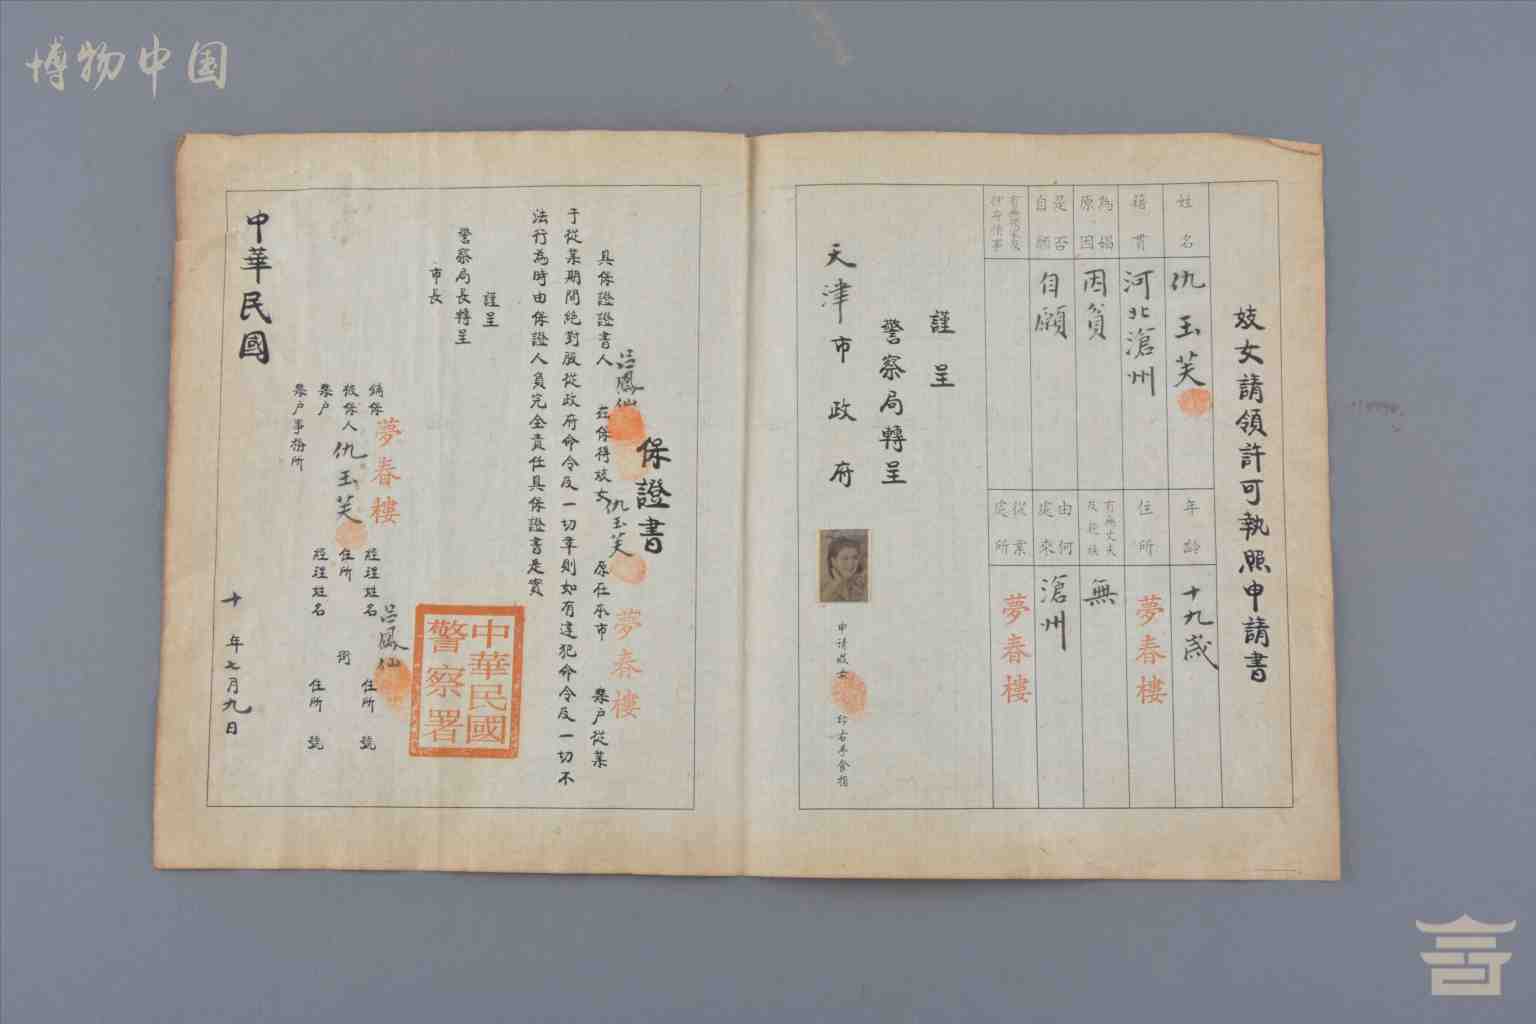 博物中国
妓女請領許可執照申請書
姓名 仇玉芙 年齡 十九歲
籍貫 河北滄州 住所 夢春樓
為娼原因 因貧 有無丈夫及親族 無
是否自願 自願 由何處來 滄州
從業處所 夢春樓
謹呈
警察局轉呈
天津市政府
申请妓女 印右手食指
保證書
具保證證書人 呂鳳仙 茲保得妓女 仇玉芙 原在本市 夢春樓 樂户從業
于從業期間絕對服從政府命令及一切章則如有違犯命令及一切不
法行為時由保證人負完全責任具保證書是實
謹呈
警察局長轉呈
市長
中華民國警察署
鋪保 夢春樓 經理姓名 呂鳳仙 住所 號
被保人 仇玉芙 住所 街
樂户 經理姓名 住所 號
樂户事務所
中華民國 十 年七月九日